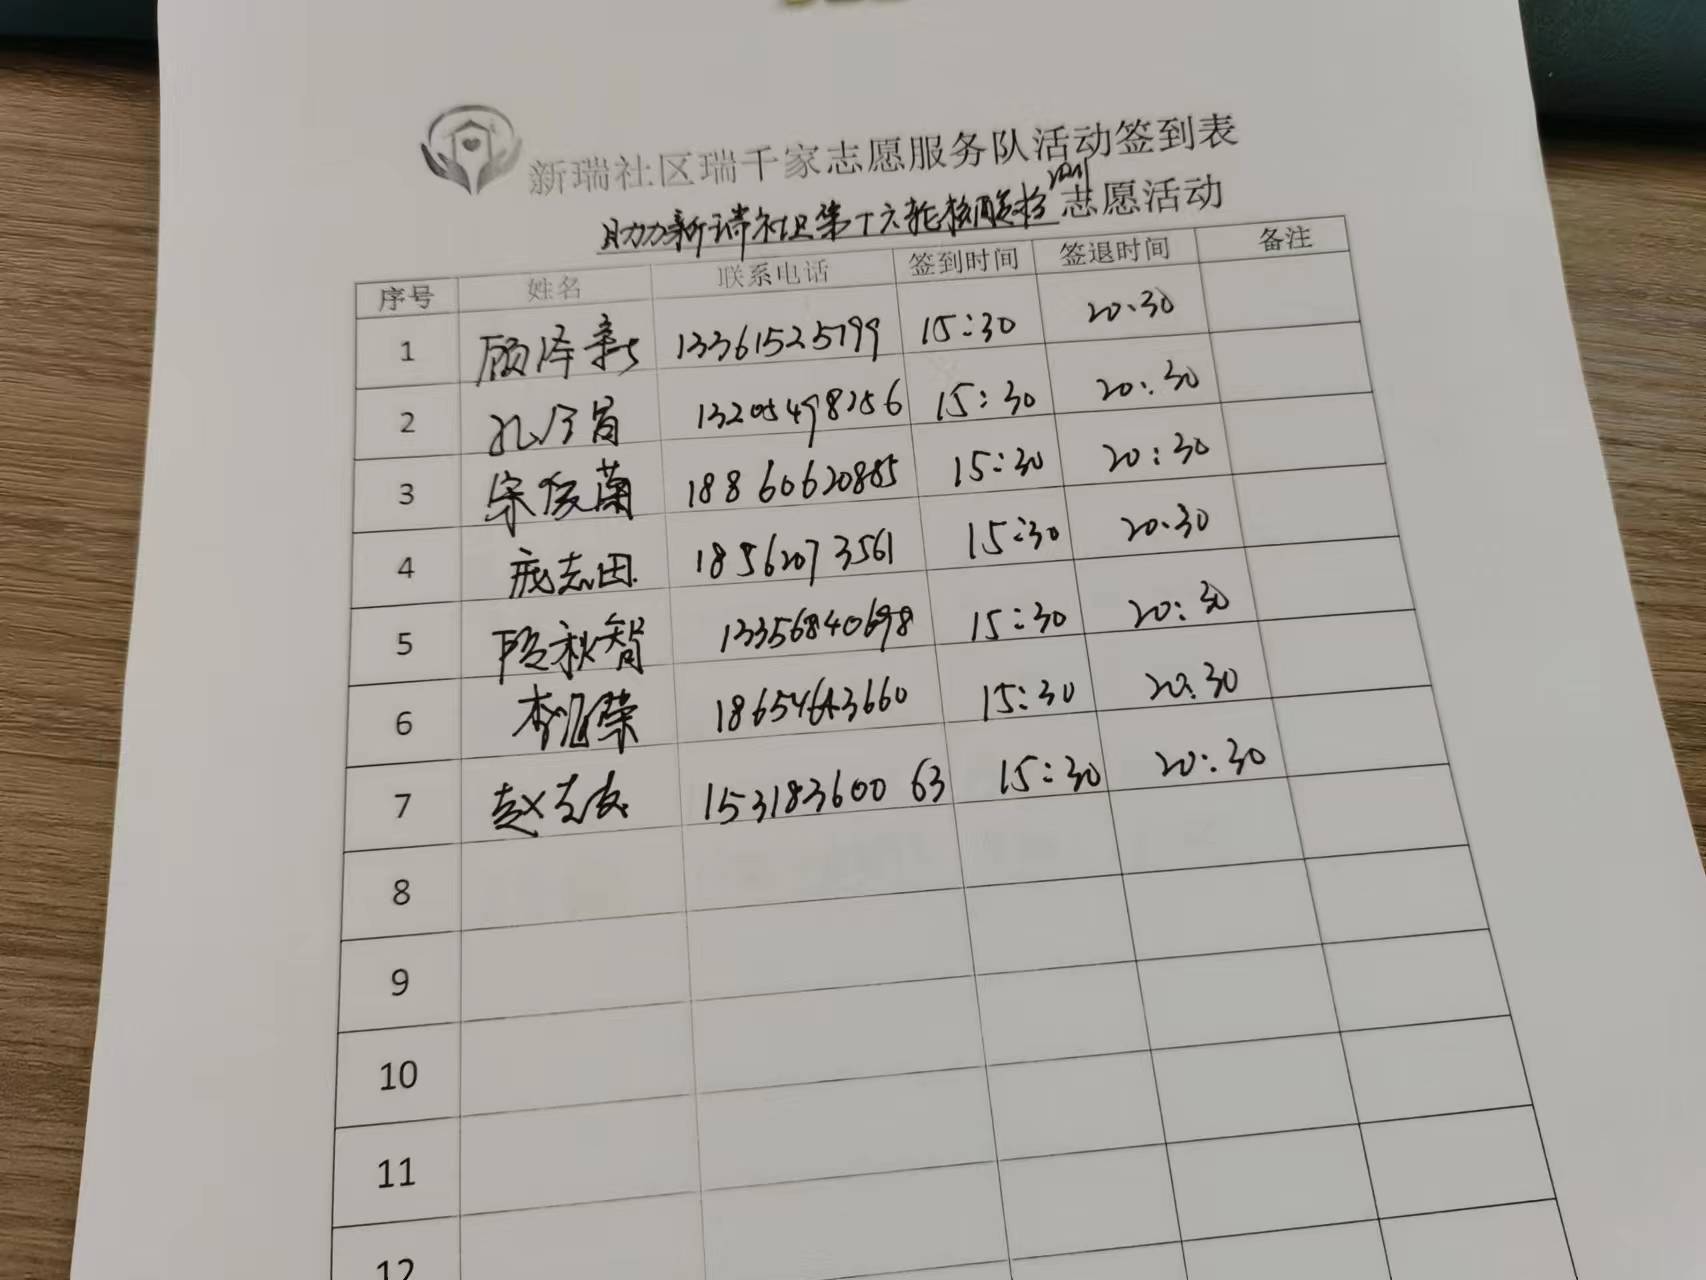 新瑞社区瑞千家志愿服务队活动签到表
助力新瑞社区第十六轮核酸检测志愿活动
序号 姓名 联系电话 签到时间 签退时间 备注
1 顾泽新 13361525799 15:30 20:30
2 孔令首 13205498256 15:30 20:30
3 宋俊菊 18860620885 15:30 20:30
4 庞志田 18562073561 15:30 20:30
5 段秋智 13356840698 15:30 20:30
6 李旭荣 18654643660 15:30 20:30
7 赵志友 15318360063 15:30 20:30
8
9
10
11
12